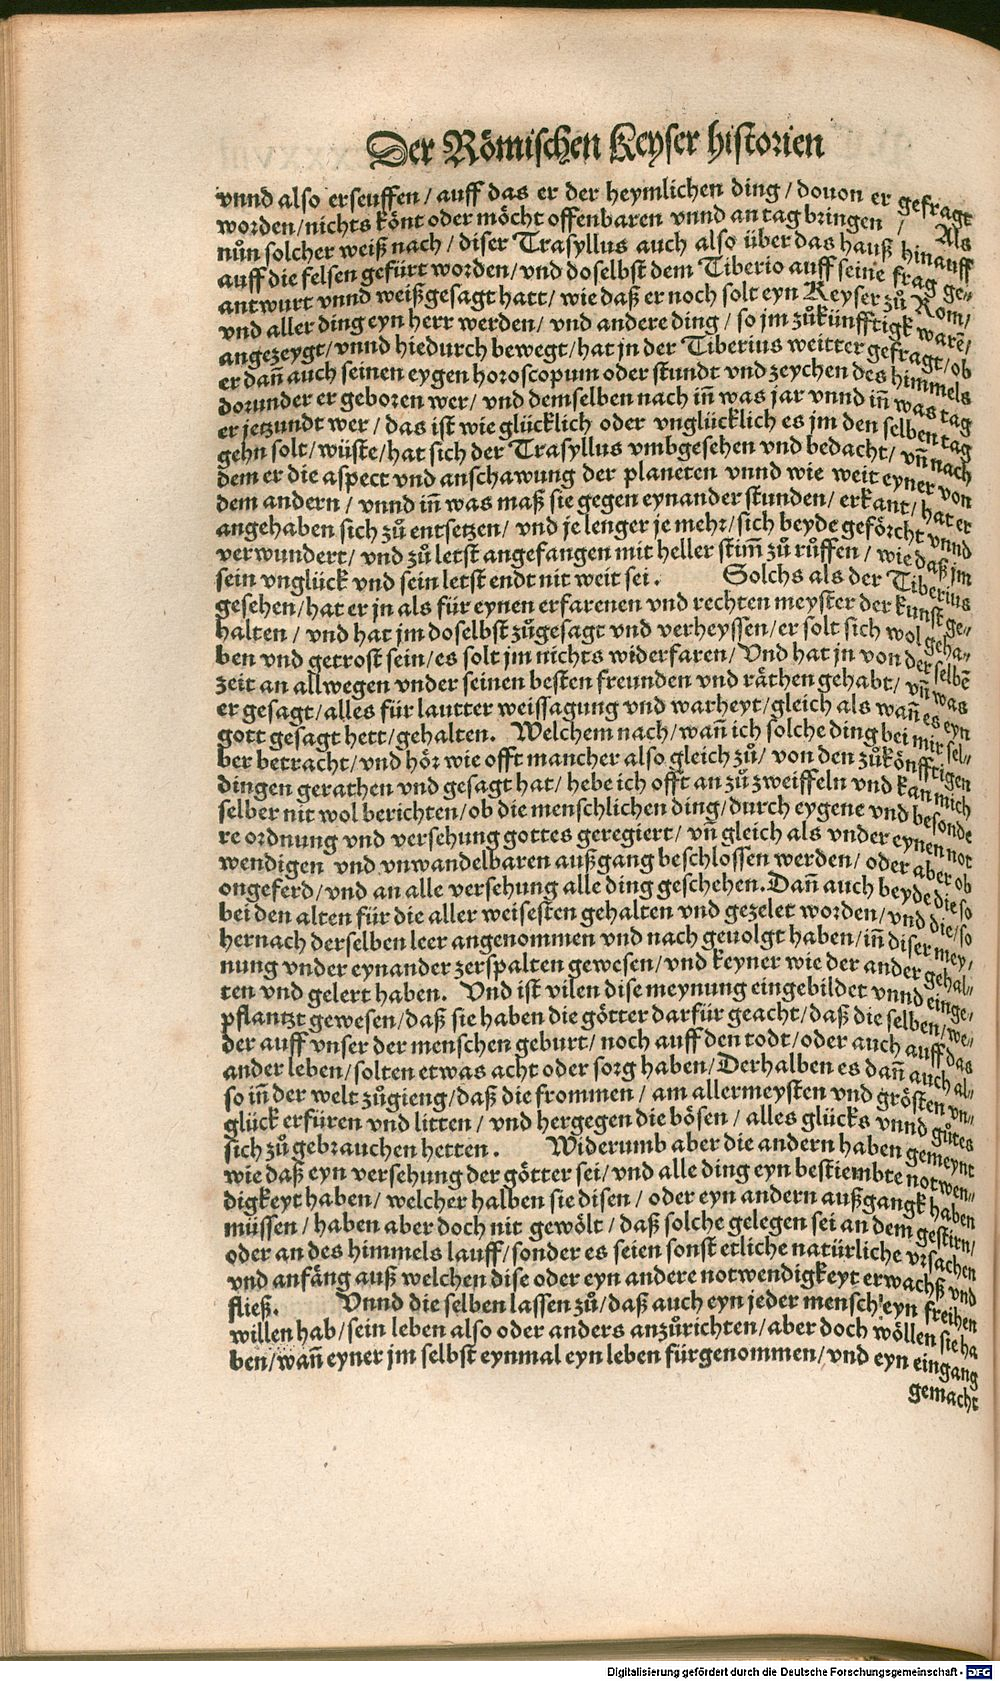 Der Römischen Keyser historien
vnnd also erseuffen / auff das er der heymlichen ding / douon er gefragt
worden / nichts könt oder möcht offenbaren vnnd an tag bringen / Als
nůn solcher weiß nach / diser Trasyllus auch also über das hauß hinauff
auff die felsen gefürt worden / vnd doselbst dem Tiberio auff seine frag ge⸗
antwurt vnnd weißgesagt hatt / wie daß er noch solt eyn Keyser zů Rom /
vnd aller ding eyn herr werden / vnd andere ding / so jm zůkünfftigk warē /
angezeygt / vnnd hiedurch bewegt / hat jn der Tiberius weitter gefragt / ob
er dañ auch seinen eygen horoscopum oder stundt vnd zeychen des himmels
dorunder er geboren wer / vnd demselben nach iñ was jar vnnd iñ was tag
er jetzundt wer / das ist wie glücklich oder vnglücklich es jm den selben tag
gehn solt / wüste / hat sich der Trasyllus vmbgesehen vnd bedacht / vñ nach
dem er die aspect vnd anschawung der planeten vnnd wie weit eyner von
dem andern / vnnd iñ was maß sie gegen eynander stunden / erkant / hat er
angehaben sich zů entsetzen / vnd je lenger je mehr / sich beyde geförcht vnnd
verwundert / vnd zů letst angefangen mit heller stim̄ zů růffen / wie daß jm
sein vnglück vnd sein letst endt nit weit sei . Solchs als der Tiberius
gesehen / hat er jn als für eynen erfarenen vnd rechten meyster der kunst ge⸗
halten / vnd hat jm doselbst zůgesagt vnd verheyssen / er solt sich wol geha⸗
ben vnd getrost sein / es solt jm nichts widerfaren / Vnd hat jn von der selbē
zeit an allwegen vnder seinen besten freunden vnd räthen gehabt / vñ was
er gesagt / alles für lautter weissagung vnd warheyt / gleich als wañ es eyn
gott gesagt hett / gehalten. Welchem nach / wañ ich solche ding bei mir sel⸗
ber betracht / vnd hör wie offt mancher also gleich zů / von den zůkönfftigen
dingen gerathen vnd gesagt hat / hebe ich offt an zů zweiffeln vnd kan mich
selber nit wol berichten / ob die menschlichen ding / durch eygene vnd besonde
re ordnung vnd versehung gottes geregiert / vñ gleich als vnder eynen not
wendigen vnd vnwandelbaren außgang beschlossen werden / oder aber ob
ongeferd / vnd an alle versehung alle ding geschehen. Dañ auch beyde die so
bei den alten für die aller weisesten gehalten vnd gezelet worden / vnd die / so
hernach derselben leer angenommen vnd nach geuolgt haben / iñ diser mey⸗
nung vnder eynander zerspalten gewesen / vnd keyner wie der ander gehal⸗
ten vnd gelert haben. Vnd ist vilen dise meynung eingebildet vnnd einge⸗
pflantzt gewesen / daß sie haben die götter darfür geacht / daß die selben / we⸗
der auff vnser der menschen geburt / noch auff den todt / oder auch auff das
ander leben / solten etwas acht oder sorg haben / Derhalben es dañ auch al⸗
so iñ der welt zůgieng / daß die frommen / am allermeysten vnd grösten vn⸗
glück erfüren vnd litten / vnd hergegen die bösen / alles glücks vnnd gůtes
sich zů gebrauchen hetten . Widerumb aber die andern haben gemeynt
wie daß eyn versehung der götter sei / vnd alle ding eyn bestiembte notwen⸗
digkeyt haben / welcher halben sie disen / oder eyn andern außgangk haben
müssen / haben aber doch nit gewölt / daß solche gelegen sei an dem gestirn /
oder an des himmels lauff / sonder es seien sonst etliche natürliche vrsachen
vnd anfäng auß welchen dise oder eyn andere notwendigkeyt erwachß vnd
fließ. Vnnd die selben lassen zů / daß auch eyn jeder mensch eyn freihen
willen hab / sein leben also oder anders anzůrichten / aber doch wöllen sie ha
ben / wañ eyner jm selbst eynmal eyn leben fürgenommen / vnd eyn eingang
gemacht
Digitalisierung gefördert durch die Deutsche Forschungsgemeinschaft - DFG